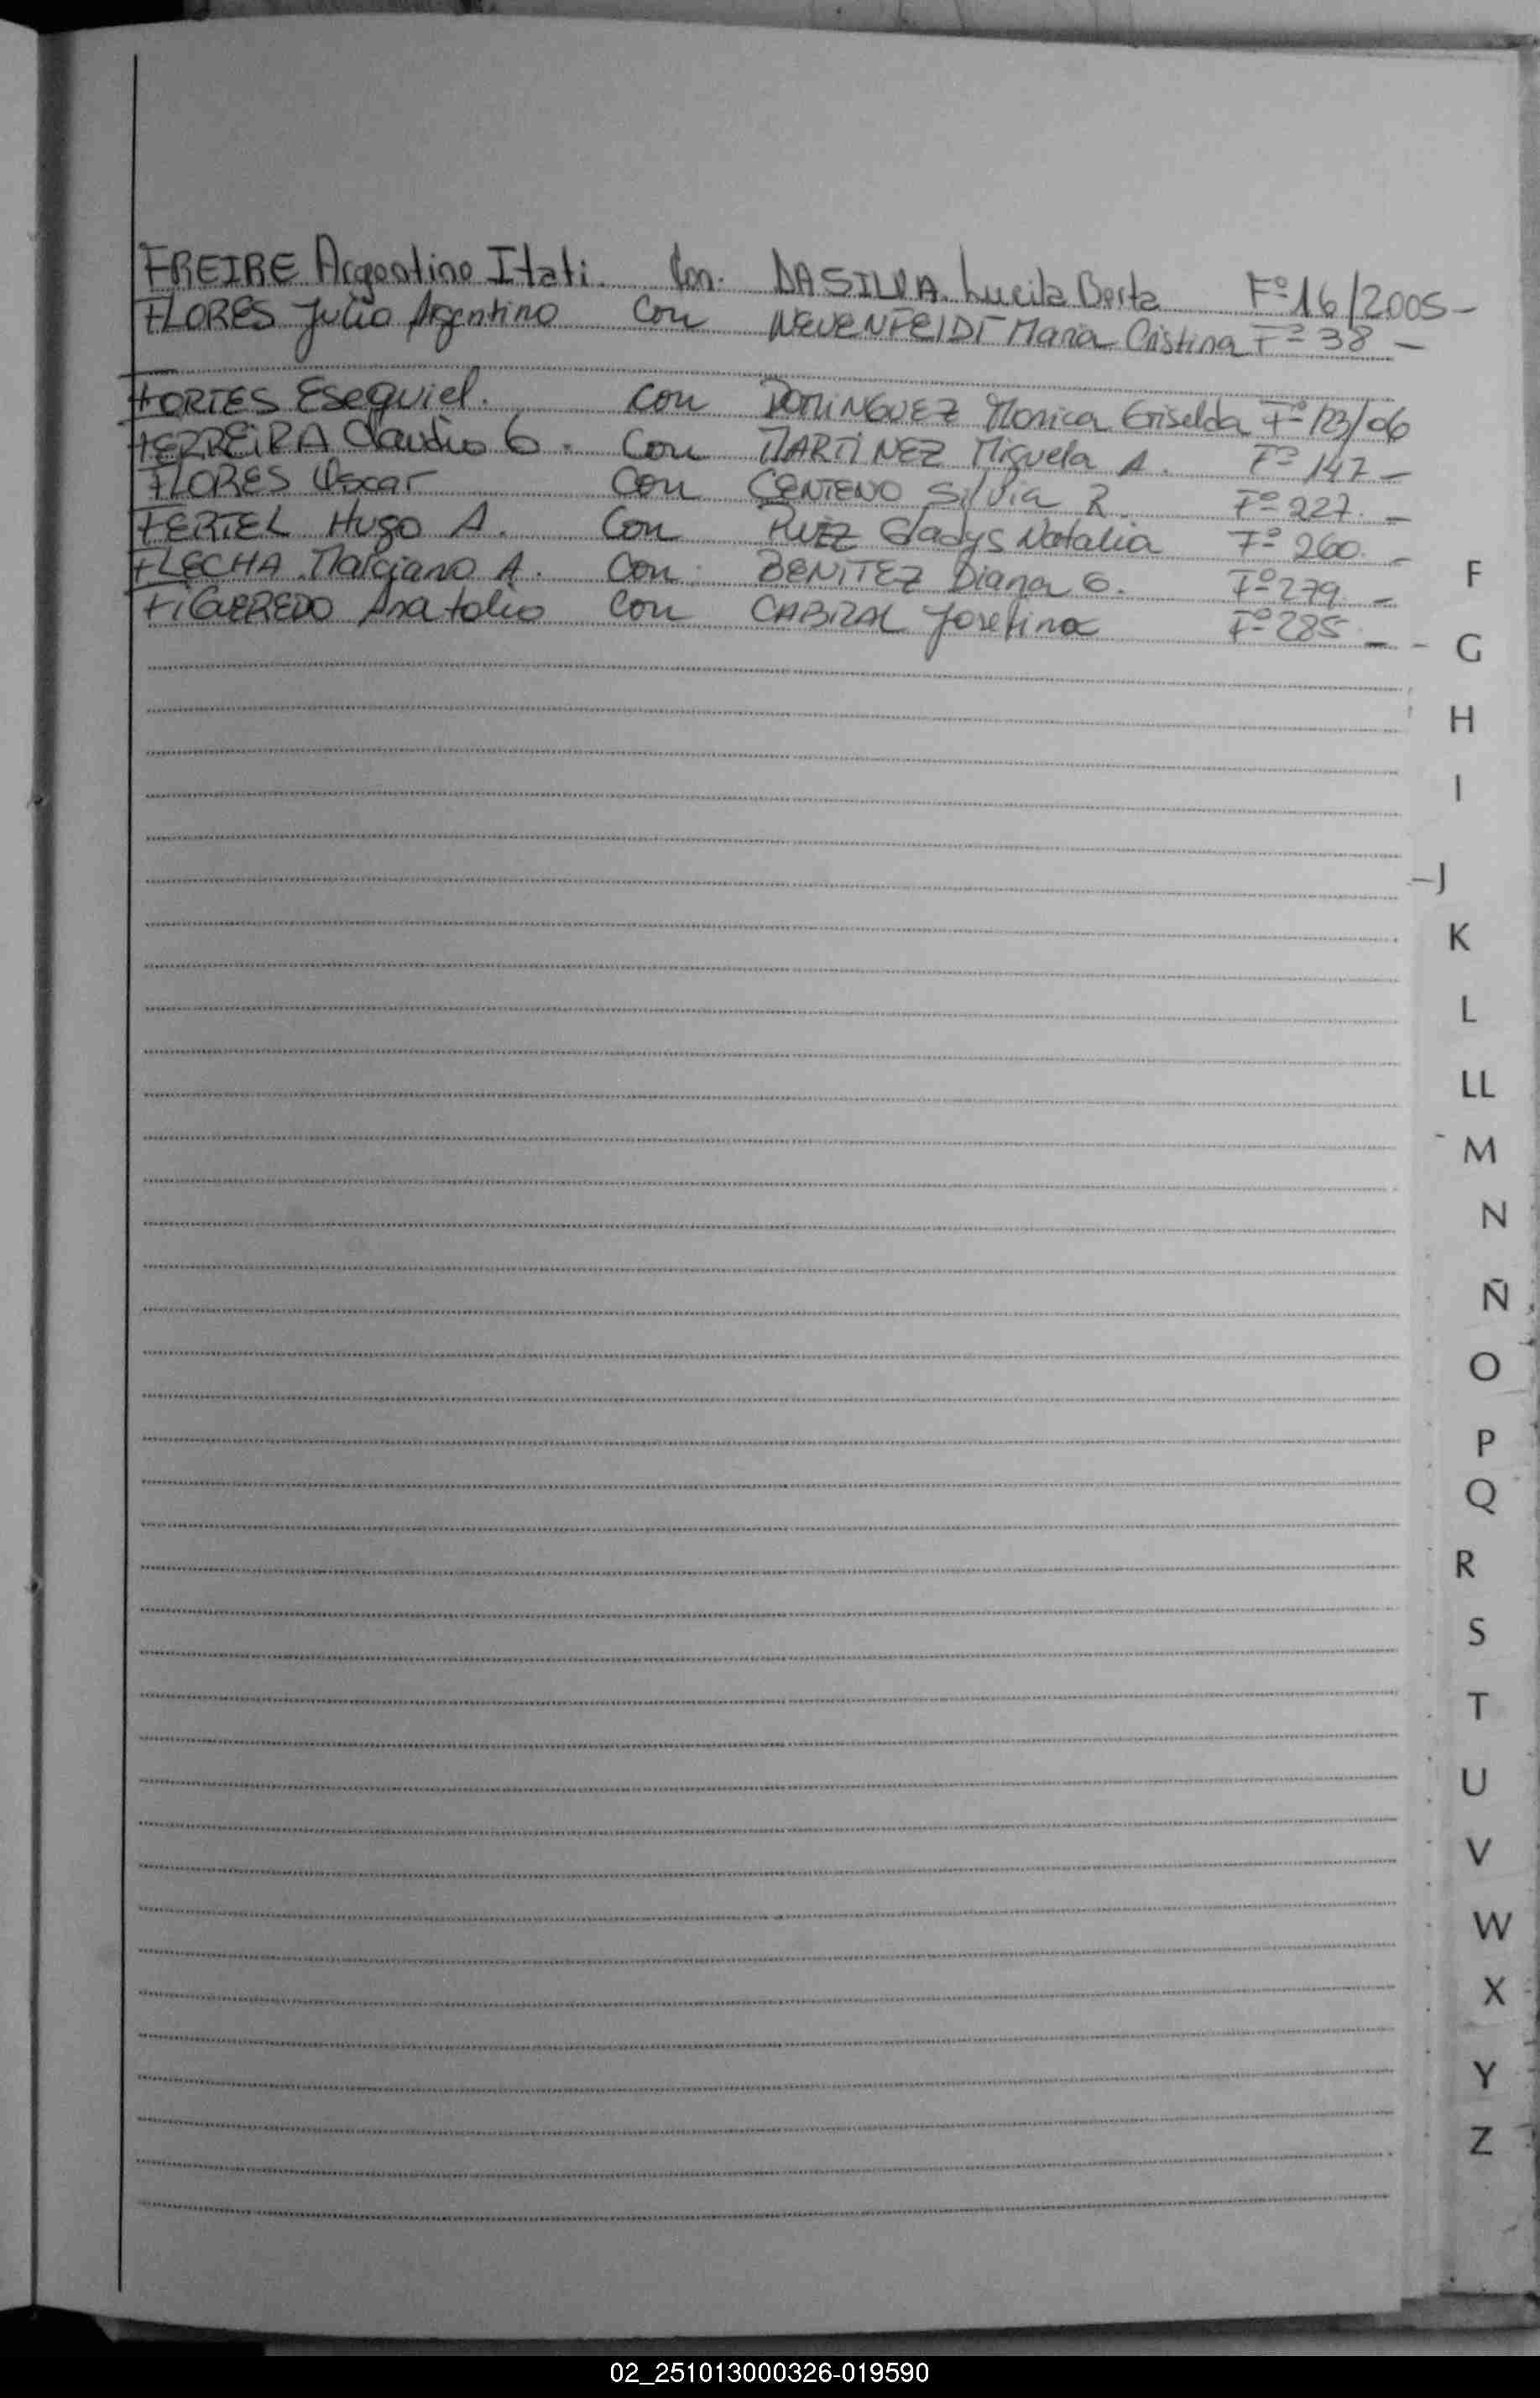 FREIRE Argentino Itati. Con. DASILVA. Lucila Berta Fº 16/2005-
FLORES Julio Argentino Con NEUENFEIDT Maria Cristina Fº 38 -
FORTES Esequiel. Con DOMINGUEZ Monica Griselda Fº 123/06
FERREIRA Claudio G. Con MARTINEZ Miguela A. Fº 147 -
FLORES Oscar Con CENTENO Silvia R. Fº 227. -
FERTEL Hugo A. Con RUIZ Gladys Natalia Fº 260. -
FLECHA Marciano A. Con BENITEZ Diana G. Fº 279 -
FIGUEREDO Anatolio Con CABRAL Josefina Fº 285 -
F
G
H
I
J
K
L
LL
M
N
Ñ
O
P
Q
R
S
T
U
V
W
X
Y
Z
02_251013000326-019590